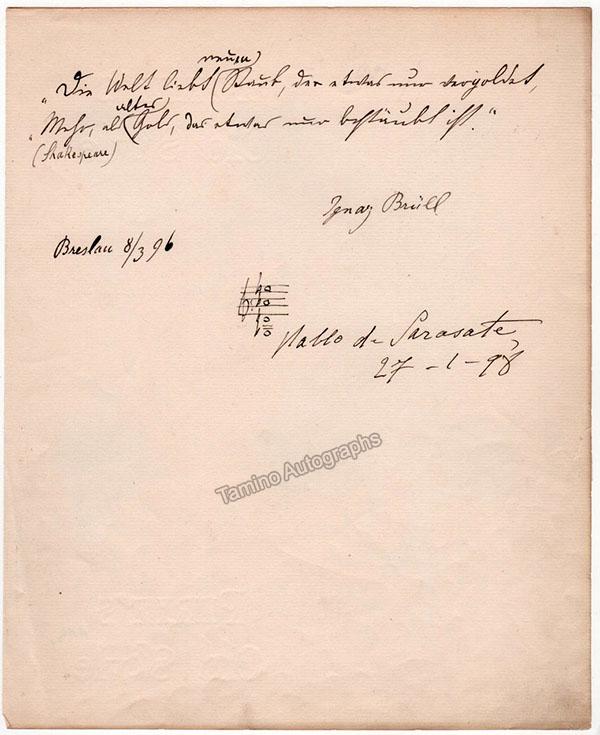 neuen
"Die Welt liebt Staub, der etwas nur vergoldet,
altes
"Mehr, als Gold, das etwas nur bestäubt ist."
(Shakespeare)
Ignaz Brüll
Breslau 8/3 96
Pablo de Sarasate
27-1-98
Tamino Autographs